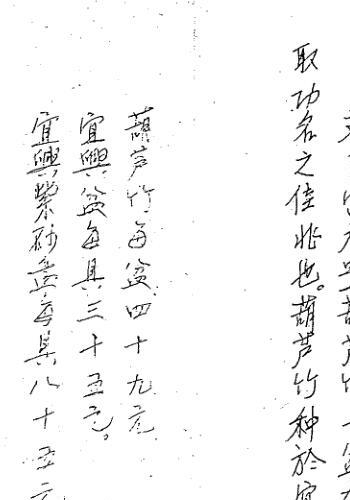 葫芦竹
取功名之佳兆也。葫芦竹种於宜
葫芦竹每盆四十九元
宜興盆每具三十五元。
宜興紫砂盆每具八十五元